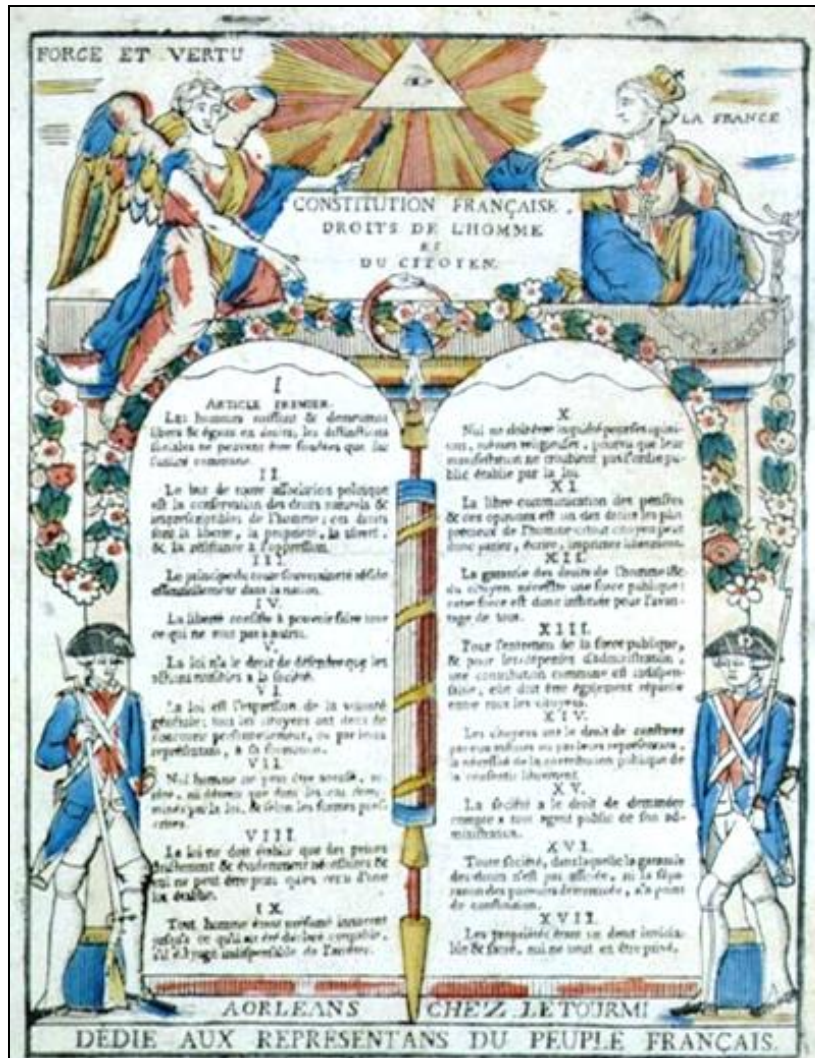 FORCE ET VERTU
LA FRANCE
CONSTITUTION FRANÇAISE.
DROITS DE L'HOMME
ET
DU CITOYEN.
I
ARTICLE PREMIER.
Les hommes naissent & demeurent
libres & égaux en droits, les distinctions
sociales ne peuvent être fondées que sur
II.
Le but de toute association politique
est la conservation des droits naturels &
imprescriptibles de l'homme; ces droits
sont la liberté, la propriété, la sûreté,
& la résistance à l'oppression.
III.
Le principe de toute souveraineté réside
essentiellement dans la nation.
IV.
La liberté consiste à pouvoir faire tout
ce qui ne nuit pas à autrui.
V.
La loi n'a le droit de défendre que les
actions nuisibles à la société.
VI.
La loi est l'expression de la volonté
générale; tous les citoyens ont droit de
concourir personnellement, ou par leurs
représentans, à sa formation.
VII.
Nul homme ne peut être accusé, ar-
rêté, ni détenu que dans les cas déter-
minés par la loi, & selon les formes pres-
crites.
VIII.
La loi ne doit établir que des peines
strictement & évidemment nécessaires &
nul ne peut être puni qu'en vertu d'une
loi établie.
IX.
Tout homme étant présumé innocent
jusqu'à ce qu'il ait été déclaré coupable,
s'il est jugé indispensable de l'arrêter.
X
Nul ne doit être inquiété pour ses opini-
ons, mêmes religieuses, pourvu que leur
manifestation ne troublent pas l'ordre pu-
blic établie par la loi.
XI.
La libre communication des pensées
& des opinions est un des droits les plus
précieux de l'homme; tout citoyen peut
donc parler, écrire, imprimer librement.
XII.
La garantie des droits de l'homme &
du citoyen nécessite une force publique;
cette force est donc instituée pour l'avan-
tage de tous.
XIII.
Pour l'entretien de la force publique,
& pour les dépenses d'administration,
une contribution commune est indispen-
sable, elle doit être également répartie
entre tous les citoyens.
XIV.
Les citoyens ont le droit de constater
par eux mêmes ou par leurs représentans,
la nécessité de la contribution publique de
la consentir librement.
XV.
La société a le droit de demander
compte à tout agent public de son ad-
ministration.
XVI.
Toute société, dans laquelle la garantie
des droits n'est pas assurée, ni la sépa-
ration des pouvoirs déterminée, n'a point
de constitution.
XVII.
Les propriétés étant un droit inviola-
ble & sacré, nul ne peut en être privé.
A ORLEANS CHEZ LETOURMI
DÉDIÉ AUX REPRESENTANS DU PEUPLE FRANÇAIS.